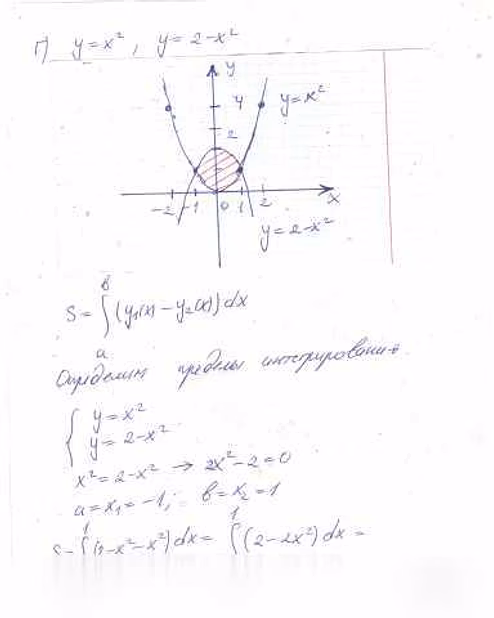 г) y = x², y = 2 - x²
y
4
y = x²
2
-2 -1 0 1 2 x
y = 2 - x²
S = ∫ₐᵇ (y₁(x) - y₂(x)) dx
Определим пределы интегрирования
{ y = x²
y = 2 - x²
x² = 2 - x² → 2x² - 2 = 0
a = x₁ = -1; b = x₂ = 1
S = ∫¹ (2 - x² - x²) dx = ∫¹ (2 - 2x²) dx =